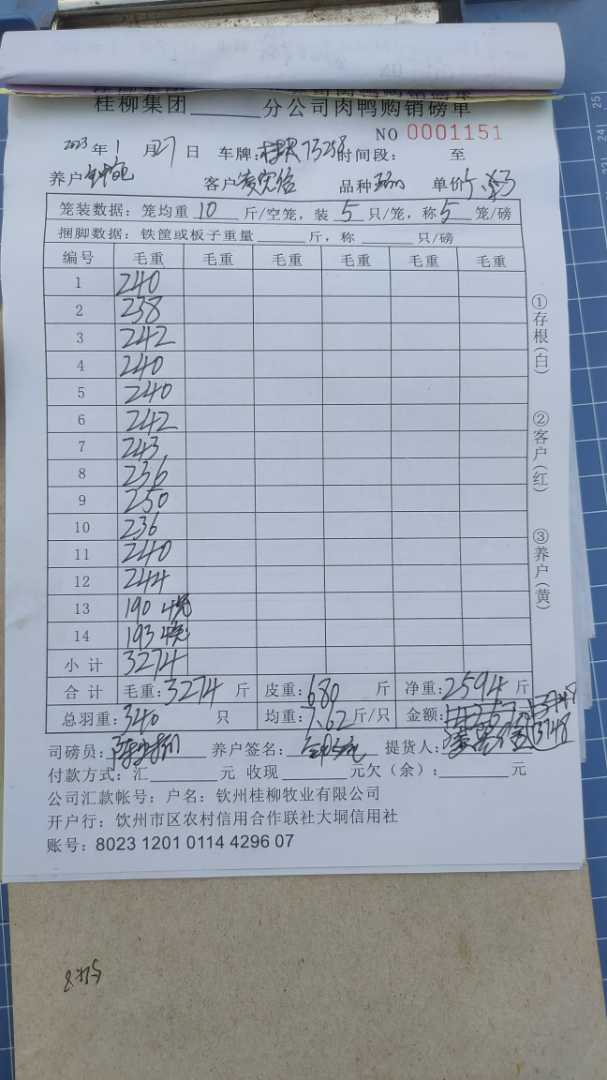 桂柳集团______分公司肉鸭购销磅单
NO 0001151
2023年1月27日 车牌: 73258 时间段: 至
养户 客户 品种 单价
笼装数据: 笼均重 10 斤/空笼, 装 5 只/笼, 称 5 笼/磅
捆脚数据: 铁筐或板子重量______斤, 称______只/磅
编号 毛重 毛重 毛重 毛重 毛重 毛重
1 240
2 238
3 242
4 240
5 240
6 242
7 243
8 236
9 250
10 236
11 240
12 244
13 190 4笼
14 193 4笼
小计 3274
合计 毛重: 3274 斤 皮重: 680 斤 净重: 2594 斤
总羽重: 340 只 均重: 7.62 斤/只 金额: 13748
13748
司磅员: 养户签名: 提货人:
付款方式: 汇______元 收现______元欠(余): ______元
公司汇款帐号: 户名: 钦州桂柳牧业有限公司
开户行: 钦州市区农村信用合作联社大垌信用社
账号: 8023 1201 0114 4296 07
①存根(白)
②客户(红)
③养户(黄)